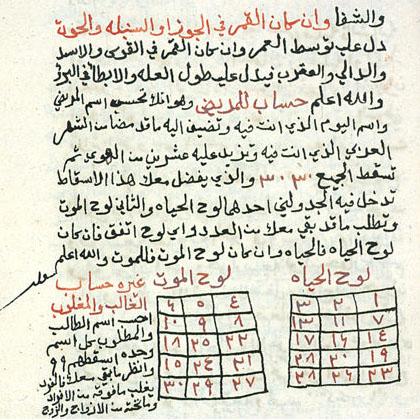 والشفا وان كان القمر في الجوزا او السنبله والحوت
دل على توسط العمر وان كان القمر في القوس والاسد
والدالي والعقرب فيدل على طول العله والابطا في البرؤ
والله اعلم حساب للمريض وهو انك تحسب اسم المريض
واسم اليوم الذي انت فيه وتضيف اليه ما قد مضا من الشهر
العربي الذي انت فيه وتزيد عليه عشرين من الهوى ثم
تسقط الجميع ٣٠ ٣٠ والذي يفضل معك من هذا الاسقاط
تدخل فيه الجدولين احدهم لوح الحياه والثاني لوح الموت
وتطلب ما قد بقي معك من العدد وفي اي لوح اتفق فان كان
لوح الحياه فالحياه وان كان لوح الموت فالموت والله اعلم
لوح الحياة لوح الموت غيره حساب
١ ٢ ٣
٧ ١١ ١٣
١٤ ١٦ ١٧
١٩ ٢٠ ٢٨
٢٣ ٢٦ ٢٨
٤ ٥ ٦
٨ ٩ ١٠
١٢ ٢٥ ١٨
٢١ ٢٤ ١٥
٢٧ ٢٩ ٣٠
الغالب والمغلوب
احسب اسم الطالب
والمطلوب كل اسم
وحده اسقطهم ٩ ٩
وانظر ما بقي معك فالفرد
يغلب ما فوقه من الافراد
وما تحته من الازواج والزوج